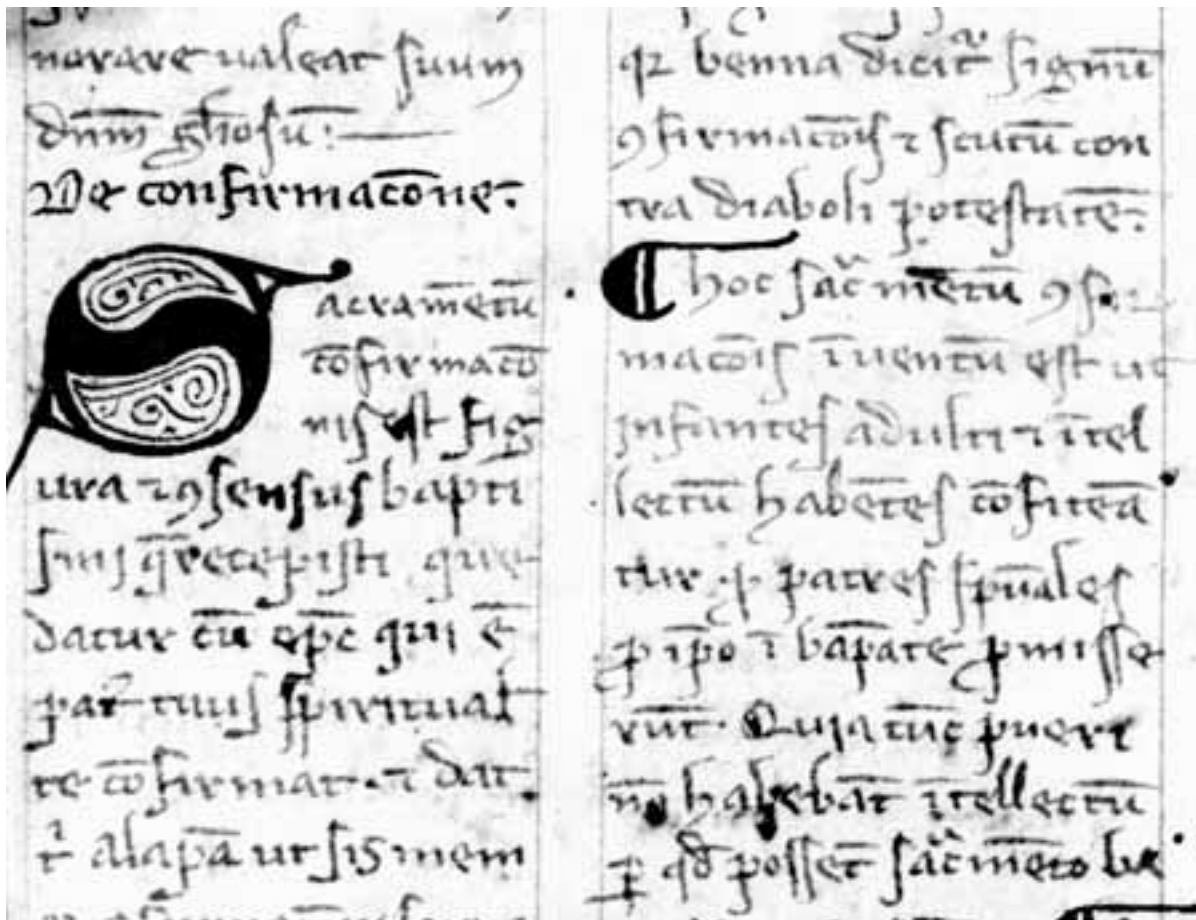 norare ualeat suum
dn̄m gl̄iosū:
De confirmacōne.
Sacram̄etū
cōfirmacō
nis est fig
ura ⁊ ꝯsensus bapti
smi q̄ recepisti que
datur cū ep̄c qui ē
pat̄ tuus spiritual
te cōfirmat. ⁊ dat
t alapā ut sis mem
qꝛ benna dicit̄ signū
ꝯfirmacōis ⁊ scutū con
tra diaboli potestatē.
hoc sac̄m̄etū ꝯfir
macōis īuentū est ut
infantes adulti ⁊ ītel
lectū habētes cōfiteā
tur patres sp̄uales
ꝓ ip̄o ī bap̄ate ꝓmisse
rūt. Quia tūc pueri
nō habebāt ītellectū
ꝑ qd̄ possēt sac̄m̄eto be